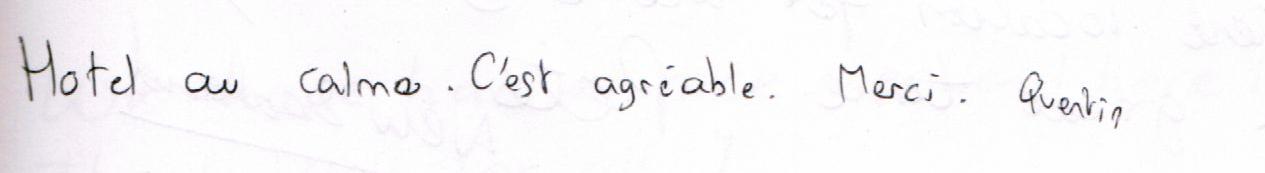 Hotel au calme. C'est agréable. Merci. Quentin